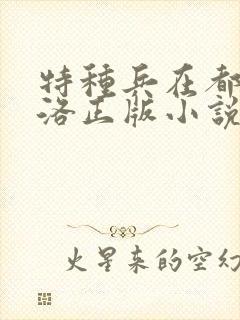 特種兵在都
洛正版小說
火星来的空幻